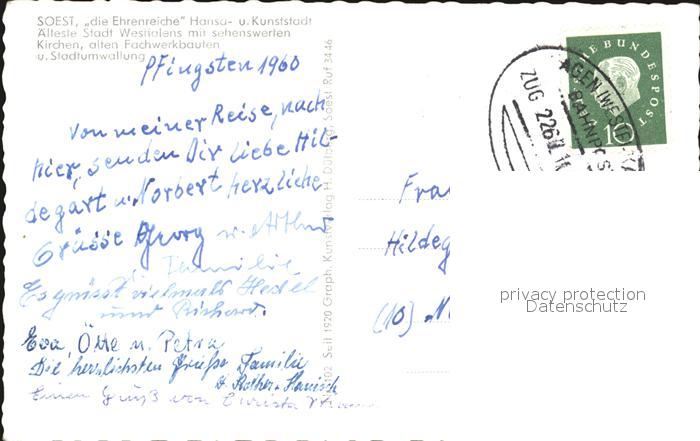 SOEST, „die Ehrenreiche" Hansa- u. Kunststadt
Älteste Stadt Westfalens mit sehenswerten
Kirchen, alten Fachwerkbauten
u. Stadtumwallung
Pfingsten 1960
Von meiner Reise, nach
hier, senden Dir liebe Hil-
degart u. Norbert herzliche
Grüsse Georg u. Arthur
Familie
Es grüsst vielmals Hedel
und Richard.
Eva, Otto u. Petra
Die herzlichsten Grüße Familie
Einen Gruß von Christa
Seit 1920 Graph. Kunstverlag H. Soest Ruf 3446
BUNDESPOST
10
ZUG 226
BAHNPOST
Fra
Hildeg
(10)
privacy protection
Datenschutz